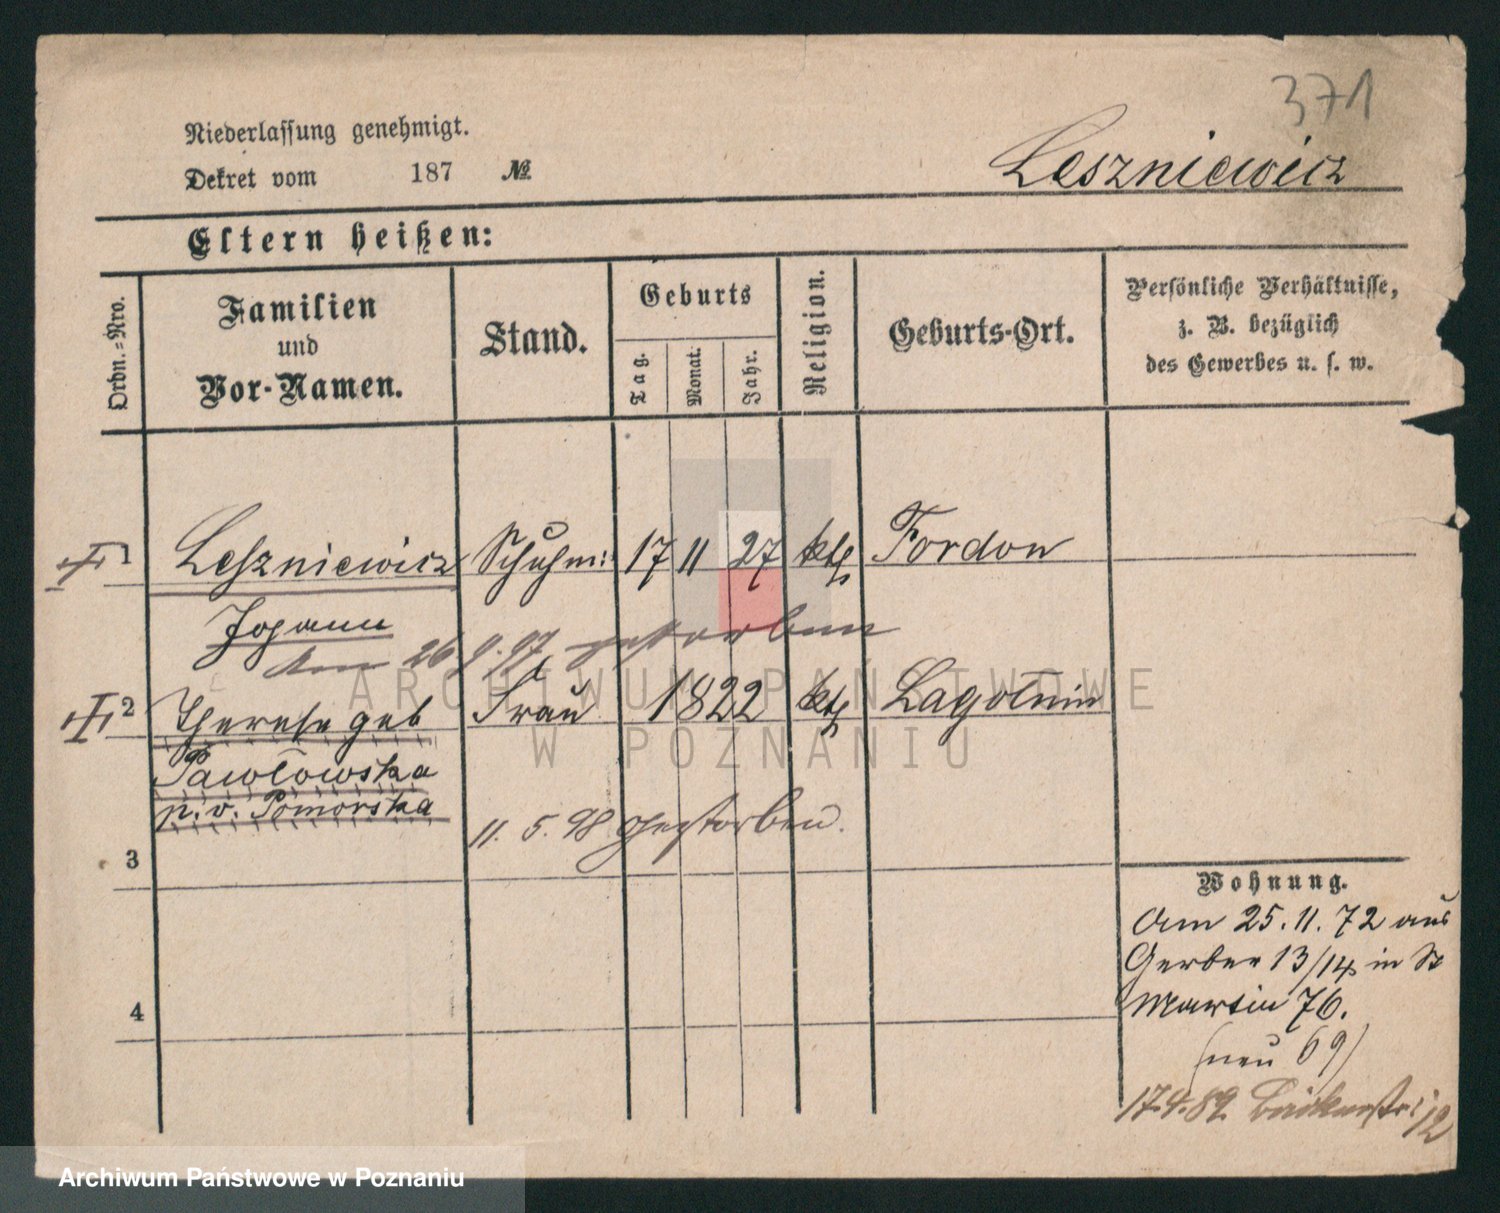 371
Niederlassung genehmigt.
Dekret vom 187 №
Leszniewicz
Eltern heißen:
Ordn.=Nro.
Familien
und
Vor-Namen.
Stand.
Geburts
Tag.
Monat.
Jahr.
Religion.
Geburts-Ort.
Persönliche Verhältnisse,
z. B. bezüglich
des Gewerbes u. s. w.
1 Leszniewicz Schuhm: 17 11 27 kth Fordon
Johann
am 26 9. 97 gestorben
2 Therese geb Frau 1822 kth
Pawłowska
p. v. Pomorska
11. 5. 98 gestorben.
3
4
Wohnung.
Am 25. 11. 72 aus
Gerber 13/14 in St
Martin 76.
(neu 69)
17.4.89 12
ARCHIWUM PAŃSTWOWE
W POZNANIU
Archiwum Państwowe w Poznaniu